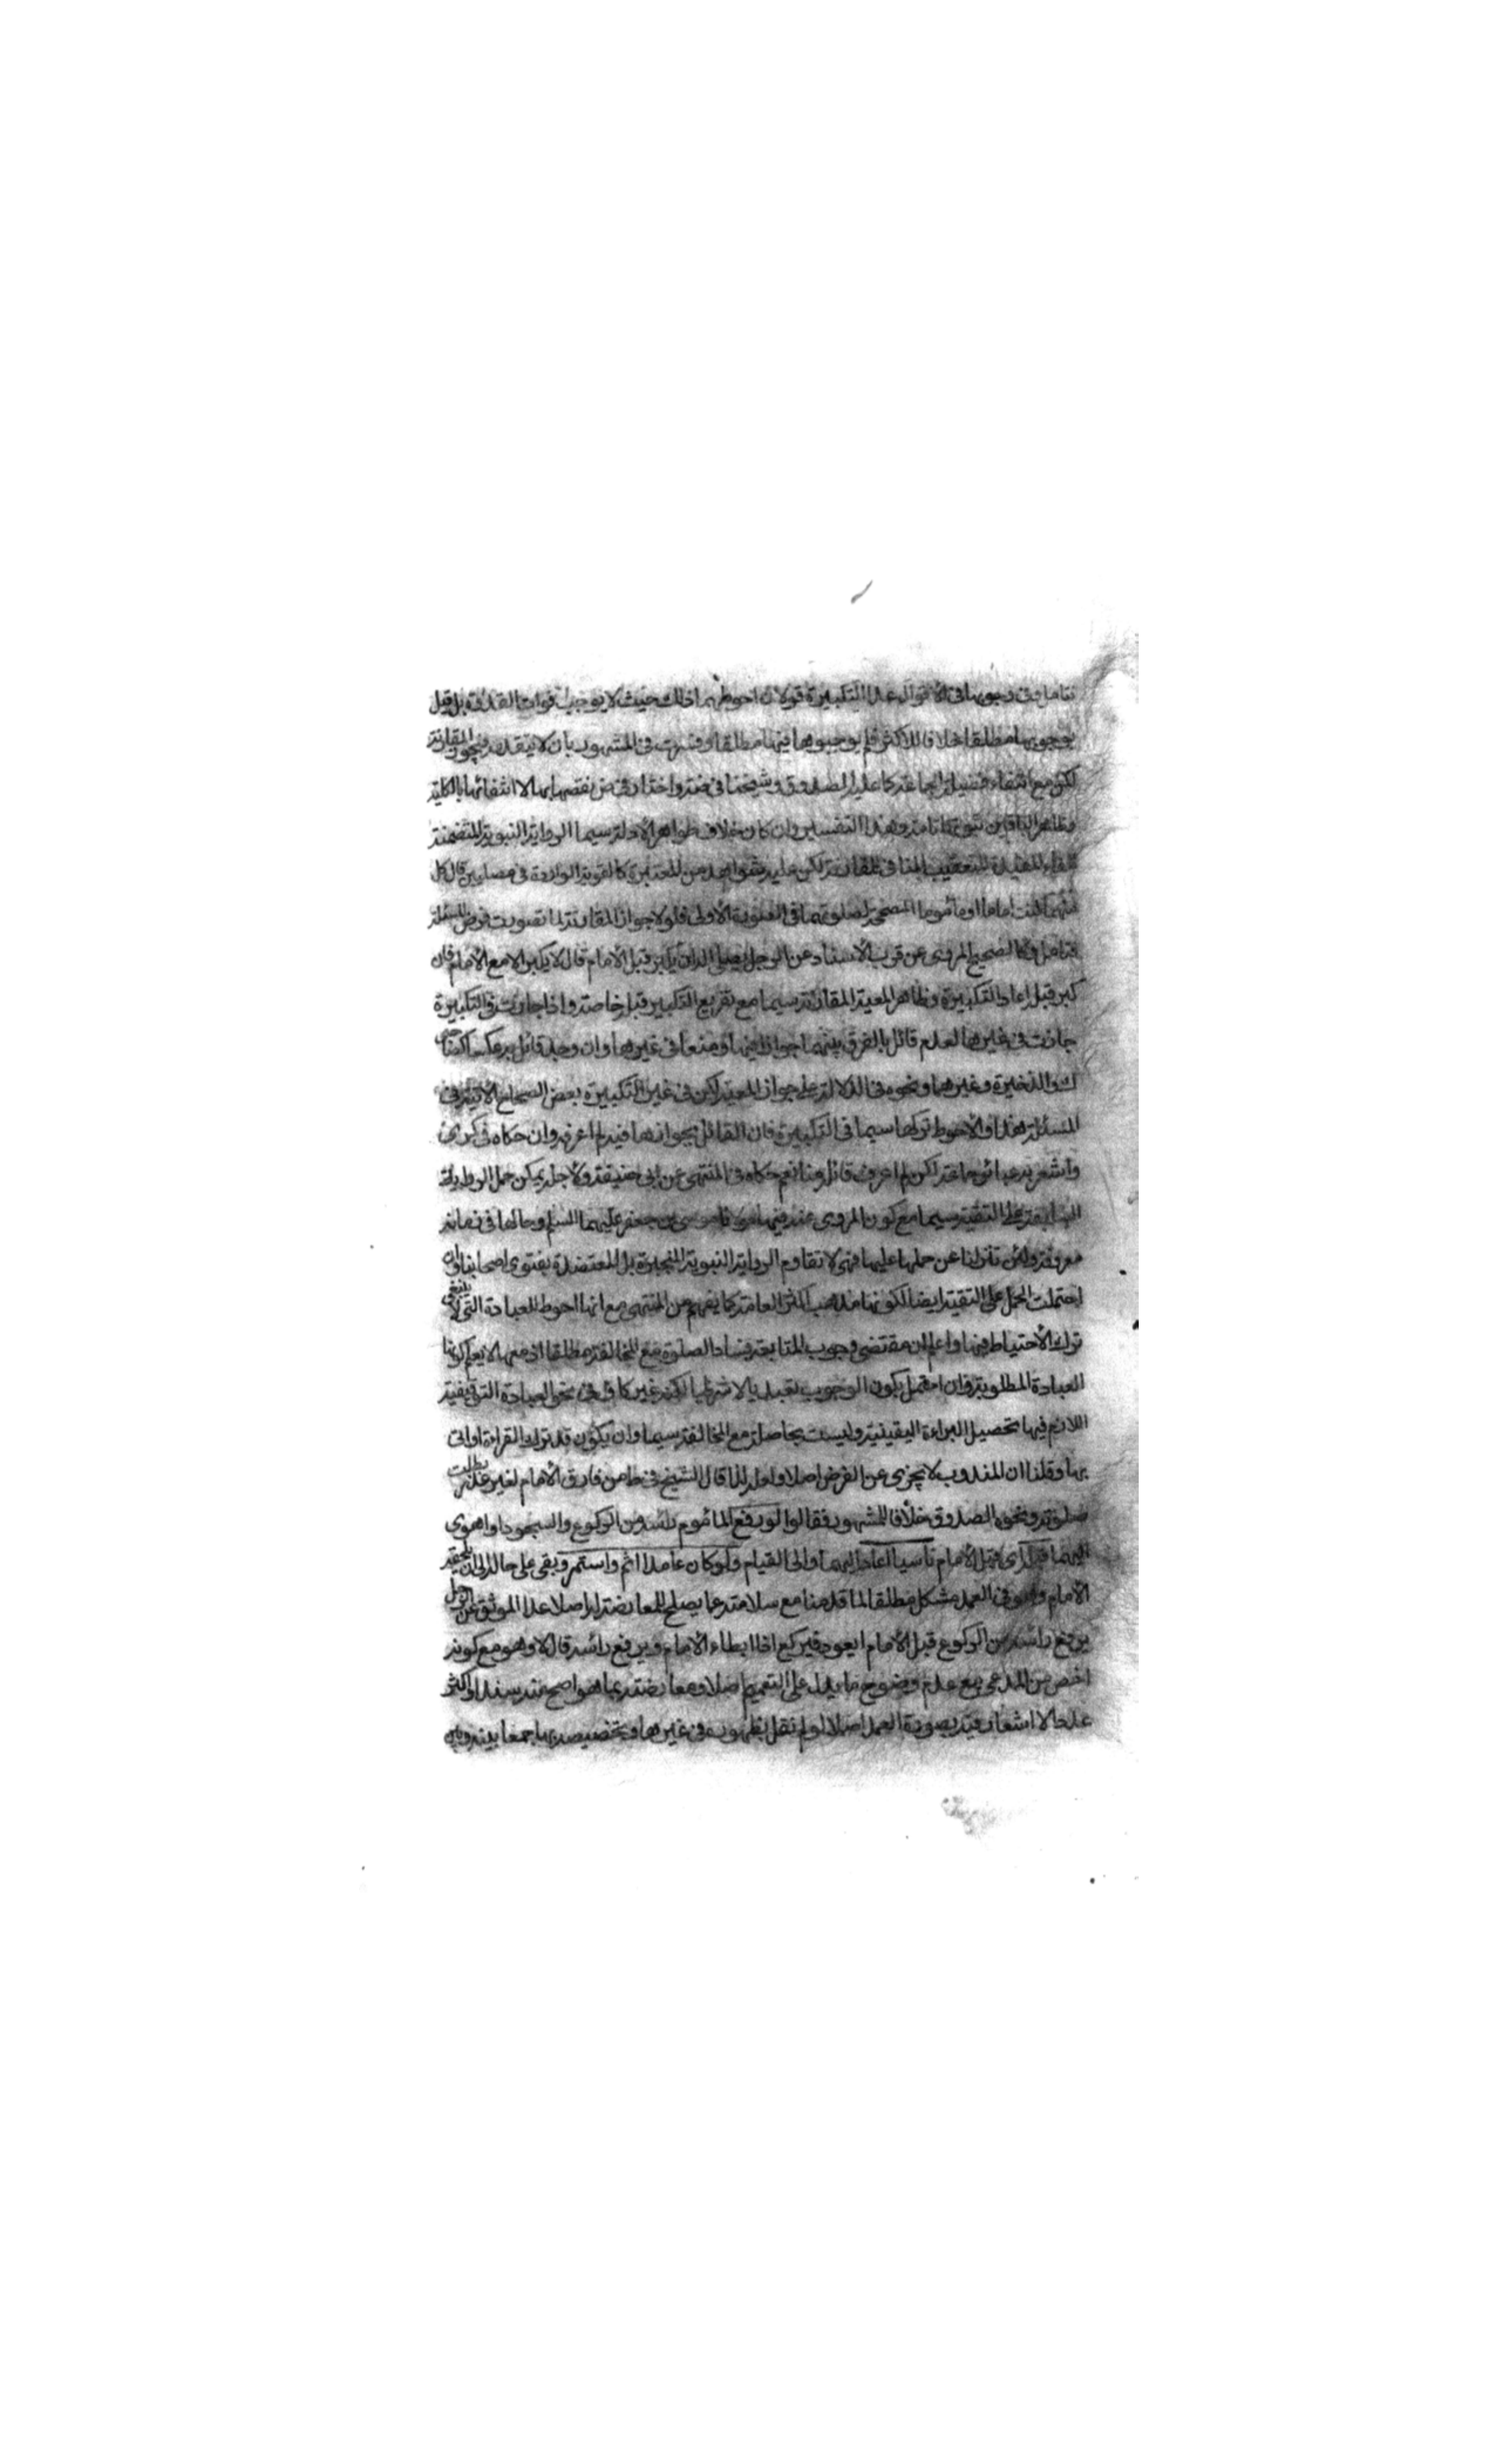 تامل وفى وجوبها فى الاقوال عدا التكبيرة قولان احوطهما ذلك حيث لا يوجب فوات القدوة بل قيل
بوجوبها مطلقا خلافا للاكثر فلم يوجبوها فيها مطلقا وفسرت فى المشهور بان لا يتقدمه فيجوز المقارنة
لكن مع انتفاء فضيلة الجماعة كما عليه الصدوق وشيخنا فى ضه واختار فى ض نقصها بها لا انتفائها بالكلية
وظاهر الباقين ثبوتها تامة وهذا التفسير وان كان خلاف ظواهر الادلة سيما الرواية النبوية المتضمنة
للفاء المفيدة للتعقيب المنافى للمقارنة لكن عليه شواهد من المعتبرة كالقوية الواردة فى مصليين قال كل
منهما كنت اماما او مأموما المصححة لصلوتهما فى الصورة الاولى فلولا جواز المقارنة لما تصورت فرض المسئلة
فتامل وكالصحيح المروى عن قرب الاسناد عن الرجل يصلى اله ان يكبر قبل الامام قال لا يكبر الا مع الامام فان
كبر قبله اعاد التكبيرة وظاهر المعية المقارنة سيما مع تفريع التكبير قبله خاصة واذا جازت فى التكبيرة
جازت فى غيرها لعدم قائل بالفرق بينهما جوازا فيها ومنعا فى غيرها وان وجد قائل بعكسه كصاحبى
ك والذخيرة وغيرهما ونحوه فى الدلالة على جواز المعية لكن فى غير التكبيرة بعض الصحاح الاتية فى
المسئلة هذا والاحوط تركها سيما فى التكبيرة فان القائل بجوازها فيه لم اعرفه وان حكاه فى كرى
واشعر به عبائر جماعة لكن لم اعرف قائله منا نعم حكاه فى المنتهى عن ابى حنيفة ولاجله يمكن حمل الرواية
السابقة على التقية سيما مع كون المروى عنه فيها مولانا موسى بن جعفر عليهما السلم وحالها فى زمانه
معروفة ولئن تنزلنا عن حملها عليها فهى لا تقاوم الرواية النبوية المنجبرة بل المعتضدة بفتوى اصحابنا وان
احتملت الحمل على التقية ايضا لكونها مذهب اكثر العامة كما يفهم من المنتهى مع انها احوط للعبادة التى لا ينبغى
ترك الاحتياط فيها واعلم ان مقتضى وجوب المتابعة فساد الصلوة مع المخالفة مطلقا اذ معها لا يعلم كونها
العبادة المطلوبة وان احتمل بكون الوجوب تعبديا لا شرطيا لكنه غير كاف فى نحو العبادة التوقيفية
اللازم فيها تحصيل البراءة اليقينية وليست بحاصلة مع المخالفة سيما وان يكون قد ترك القراءة او اتى
بها وقلنا ان المندوب لا يجزى عن الفرض اصلا ولعله لذا قال الشيخ فى ط من فارق الامام لغير عذر بطلت
صلوته ونحوه الصدوق خلافا للمشهور فقالوا لو رفع المأموم رأسه من الركوع والسجود او اهوى
اليهما قبله اى قبل الامام ناسيا اعاد اليهما والى القيام ولو كان عامدا اثم واستمر وبقى على حاله الى ان يلحقه
الامام وهو فى العمد مشكل مطلقا لما قدمنا مع سلامته عما يصلح للمعارضة له اصلا عدا الموثق عن الرجل
يرفع رأسه من الركوع قبل الامام ايعود فيركع اذا ابطاء الامام ويرفع رأسه قال لا وهو مع كونه
اخص من المدعى مع عدم وضوح ما يدل على التعميم اصلا ومعارضته بما هو اصح منه سندا واكثر
عددا لا اشعار فيه بصورة العمد اصلا لو لم نقل بظهوره فى غيرها وتخصيصه بها جمعا بينه وبين